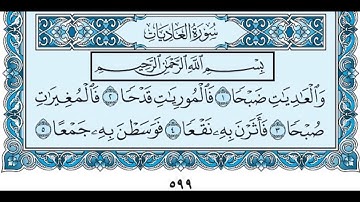 سُورَةُ العَادِيَاتِ
بِسْمِ اللَّهِ الرَّحْمَٰنِ الرَّحِيمِ
وَالْعَادِيَاتِ ضَبْحًا ١ فَالْمُورِيَاتِ قَدْحًا ٢ فَالْمُغِيرَاتِ
صُبْحًا ٣ فَأَثَرْنَ بِهِ نَقْعًا ٤ فَوَسَطْنَ بِهِ جَمْعًا ٥
٥٩٩